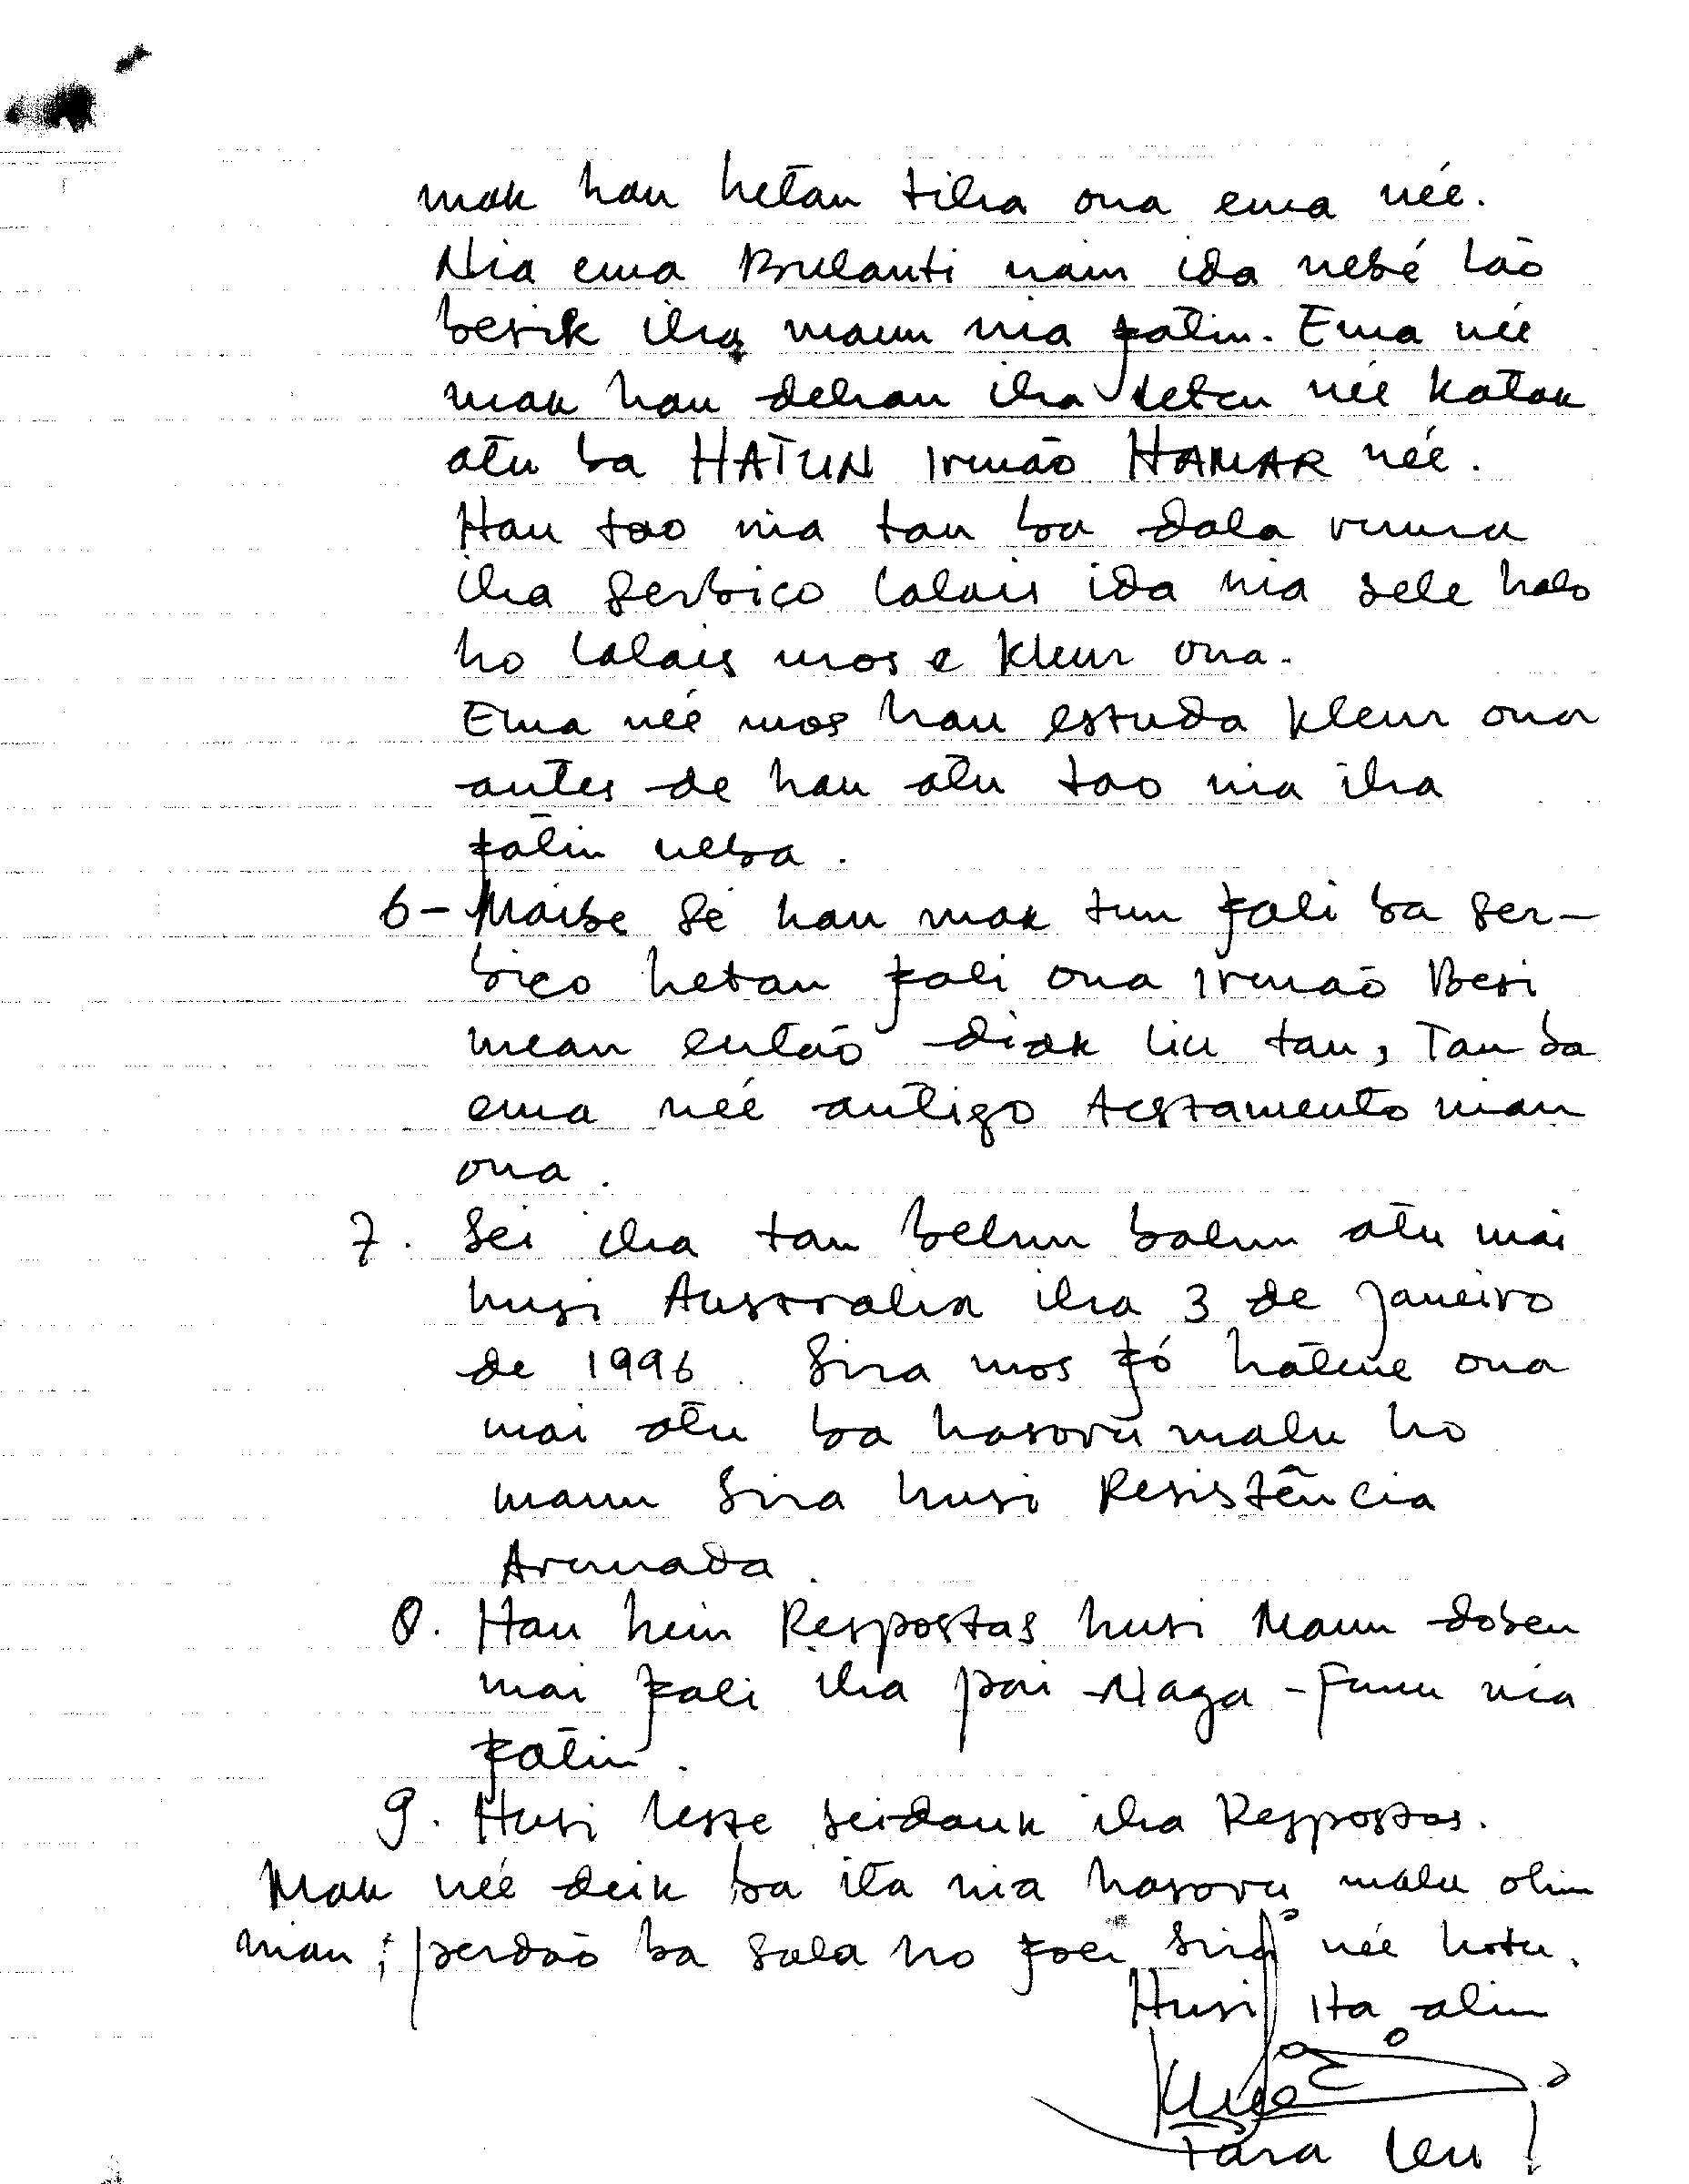 mak hau hetan tiha ona ema née.
Nia ema Brulanti nain ida nebé lao
besik iha maun nia fatin. Ema née
mak hau dehan iha leten née katak
atu ba HATUN Irmão HAMAR née.
Hau tao nia tan ba dala ruma
iha serbiço lalais ida nia bele halo
ho lalais mos e kleur ona.
Ema née mos hau estuda kleur ona
antes de hau atu tao nia iha
fatin neba.
6- Maibe se hau mak tun fali ba ser-
biço hetan fali ona Irmão Besi
mean então diak liu tan, Tan ba
ema née antigo testamento nian
ona.
7. Sei iha tan belun balun atu mai
husi Australia iha 3 de Janeiro
de 1996. Sira mos fó hatene ona
mai atu ba hasoru malu ho
maun sira husi Resistência
Armada.
8. Hau hein Respostas husi Maun doben
mai fali iha pai Naga-Funu nia
fatin.
9. Husi leste seidauk iha Respostas.
Mak née deik ba ita nia hasoru malu ohin
nian; perdão ba sala ho foer sira née hotu.
Husi ita alin
Tara Leu!